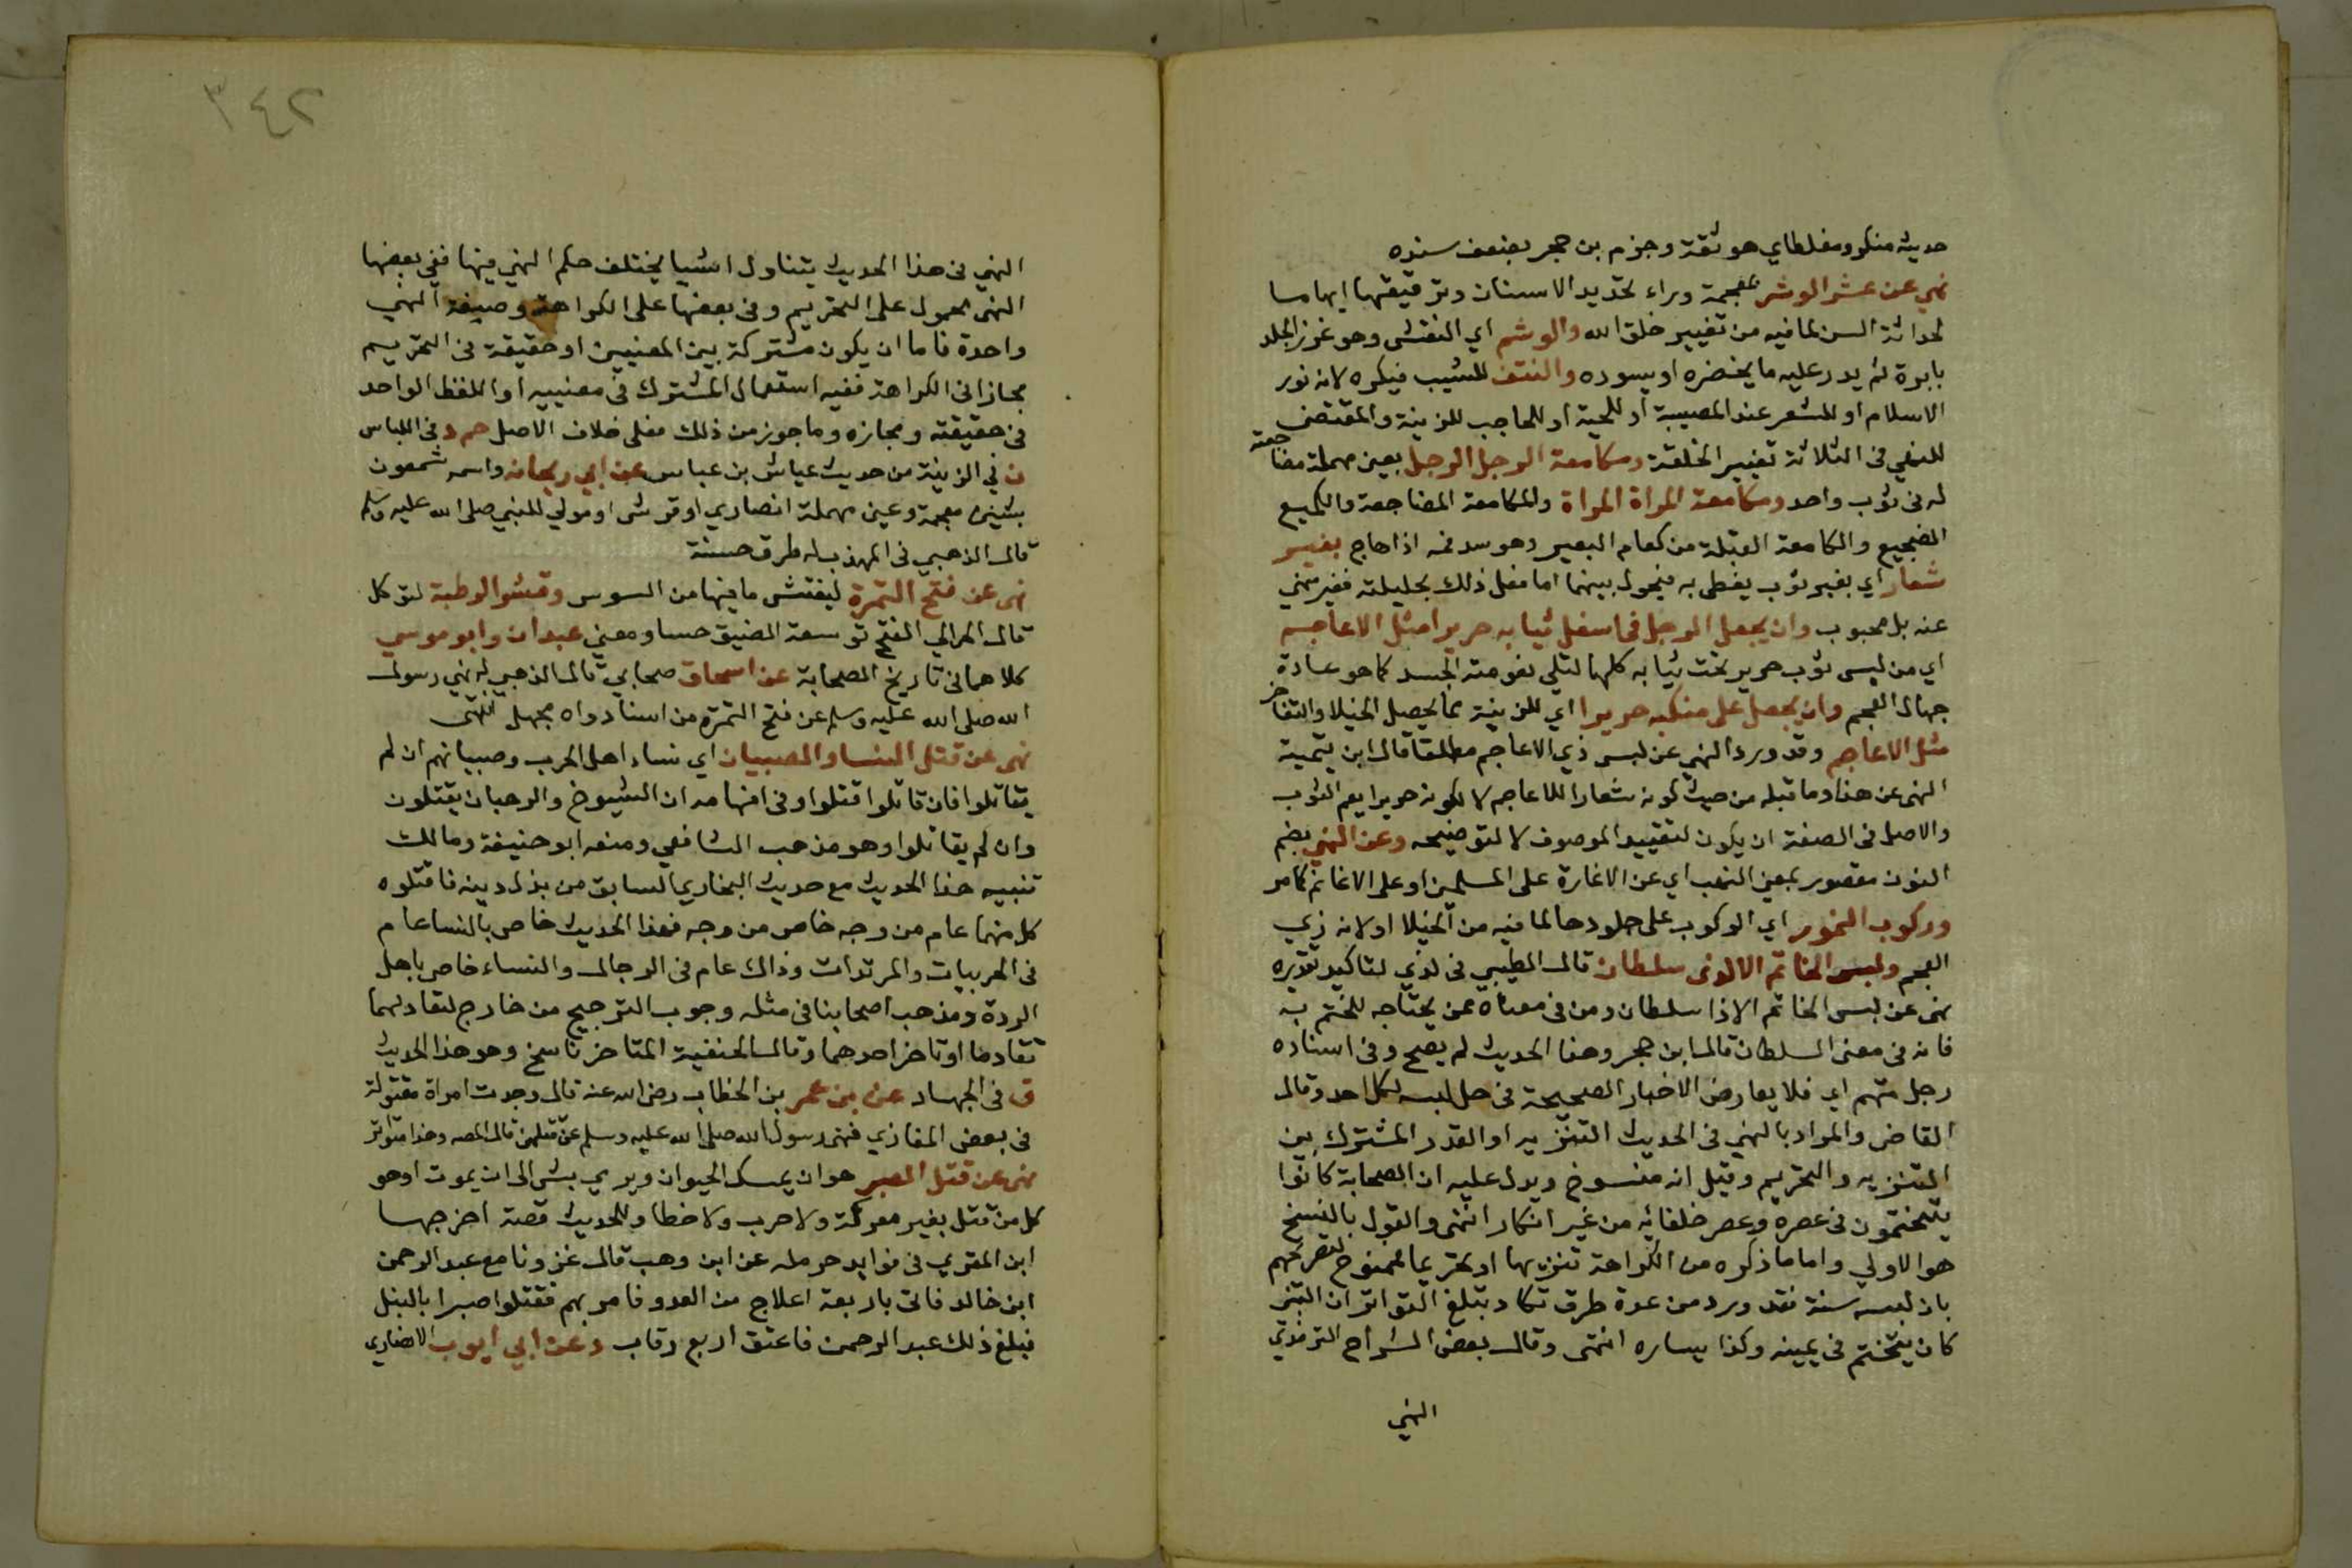 حديثه منكر ومغلطاي هو ثقة وجزم بن حجر بضعف سنده
نهي عن عشر الوشر بمعجمة وراء تحديد الاسنان وترقيقها ايهاما
لحداثة السن لما فيه من تغيير خلق الله والوشم اي النقش وهو غرز الجلد
بابرة ثم يدر عليه ما يخضره او يسوده والنتف للشيب فيكره لانه نور
الاسلام او للشعر عند المصيبة او للحية او للحاجب للزينة والمقتضى
للنهي في الثلاثة تغيير الخلقة ومكامعة الرجل الرجل بعين مهملة مضاجعته
له في ثوب واحد ومكامعة المراة المراة والمكامعة المضاجعة والكميع
الضجيع والكامعة القبلة من كعام البعير وهو سد فمه اذا هاج بغير
شعار اي بغير ثوب يغطى به فيحول بينهما اما فعل ذلك بحليلته فغير منهي
عنه بل محبوب وان يجعل الرجل في اسفل ثيابه حريرا مثل الاعاجم
اي من لبس ثوب حرير تحت ثيابه كلها لتلي نعومته الجسد كما هو عادة
جهال العجم وان يجعل على منكبه حريرا اي للزينة بما يحصل الخيلا والتفاخر
مثل الاعاجم وقد ورد النهي عن لبس ذي الاعاجم مطلقا قال ابن تيمية
النهي عن هذا وما قبله من حيث كونه شعارا للاعاجم لا لكونه حريرا يعم الثوب
والاصل في الصفة ان يكون لتقييد الموصوف لا لتوضيحه وعن النهبي بضم
النون مقصور بمعنى النهب اي عن الاغارة على المسلمين او على الاغانم كما مر
وركوب النمور اي الركوب على جلودها لما فيه من الخيلا او لانه زي
العجم ولبس الخاتم الا لذى سلطان قال الطيبي في لذي لتاكيد تقديره
نهى عن لبس الخاتم الا ذا سلطان ومن في معناه ممن يحتاجه للختم به
فانه في معنى السلطان قال ابن حجر وهذا الحديث لم يصح وفي اسناده
رجل متهم اي فلا يعارض الاخبار الصحيحة في حل لبسه لكل احد وقال
القاضي والمراد بالنهي في الحديث التنزيه او القدر المشترك بين
التنزيه والتحريم وقيل انه منسوخ ويدل عليه ان الصحابة كانوا
يتختمون في عصره وعصر خلفائه من غير انكار انتهى والقول بالنسخ
هو الاولي واما ما ذكره من الكراهة تنزيها او تحريما فممنوع لتصريحهم
بان لبسه سنة فقد ورد من عدة طرق تكاد تبلغ التواتر ان النبي
كان يتختم في يمينه وكذا يساره انتهى وقال بعض الشراح الترمذي
النهي
٣٤٢
النهي في هذا الحديث يتناول اشيا يختلف حكم النهي فيها ففي بعضها
النهي محمول على التحريم وفي بعضها على الكراهة وصيغة النهي
واحدة فاما ان يكون مشتركة بين المعنيين او حقيقة في التحريم
مجازا في الكراهة ففيه استعمال المشترك في معنييه او اللفظ الواحد
في حقيقته ومجازه وما جوز من ذلك فعلى خلاف الاصل حم د في اللباس
ن في الزينة من حديث عياش بن عباس عن ابي ريحانه واسمه شمعون
بشين معجمة وعين مهملة انصاري او قرشي او مولي للنبي صلى الله عليه وسلم
قال الذهبي في المهذب له طرق حسنة
نهى عن فتح التمرة ليفتش ما فيها من السوس وقشر الرطبة لتوكل
قال الحرالي الفتح توسعة الضيق حسا ومعني عبدان وابو موسي
كلاهما في تاريخ الصحابة عن اسحاق صحابي قال الذهبي له نهي رسول
الله صلى الله عليه وسلم عن فتح التمرة من اسناد واه مجهل انتهى
نهى عن قتل النسا والصبيان اي نساء اهل الحرب وصبيانهم ان لم
يقاتلوا فان قاتلوا قتلوا وفي افهامه ان الشيوخ والرهبان يقتلون
وان لم يقاتلوا وهو مذهب الشافعي ومنعه ابو حنيفة ومالك
تنبيه هذا الحديث مع حديث البخاري السابق من بدل دينه فاقتلوه
كل منهما عام من وجه خاص من وجه فهذا الحديث خاص بالنسا عام
في الحربيات والمرتدات وذاك عام في الرجال والنساء خاص باهل
الردة ومذهب اصحابنا في مثله وجوب الترجيح من خارج لتعادلهما
تقادما او تاخر احدهما وقال الحنفية المتاخر ناسخ وهو هذا الحديث
ق في الجهاد عن بن عمر بن الخطاب رضي الله عنه قال وجدت امراة مقتولة
في بعض المغازي فنهى رسول الله صلى الله عليه وسلم عن قتلهن قال المصه وهذا متواتر
نهى عن قتل الصبر هو ان يمسك الحيوان ويرمي بشي الى ان يموت او هو
كل من قتل بغير معركة ولا حرب ولا خطا وللحديث قصة اخرجها
ابن المقري في فوايد حرمله عن ابن وهب قال غزونا مع عبد الرحمن
ابن خالد فاتى باربعة اعلاج من العدو فامر بهم فقتلوا صبرا بالنبل
فبلغ ذلك عبد الرحمن فاعتق اربع رقاب د عن ابي ايوب الانصاري